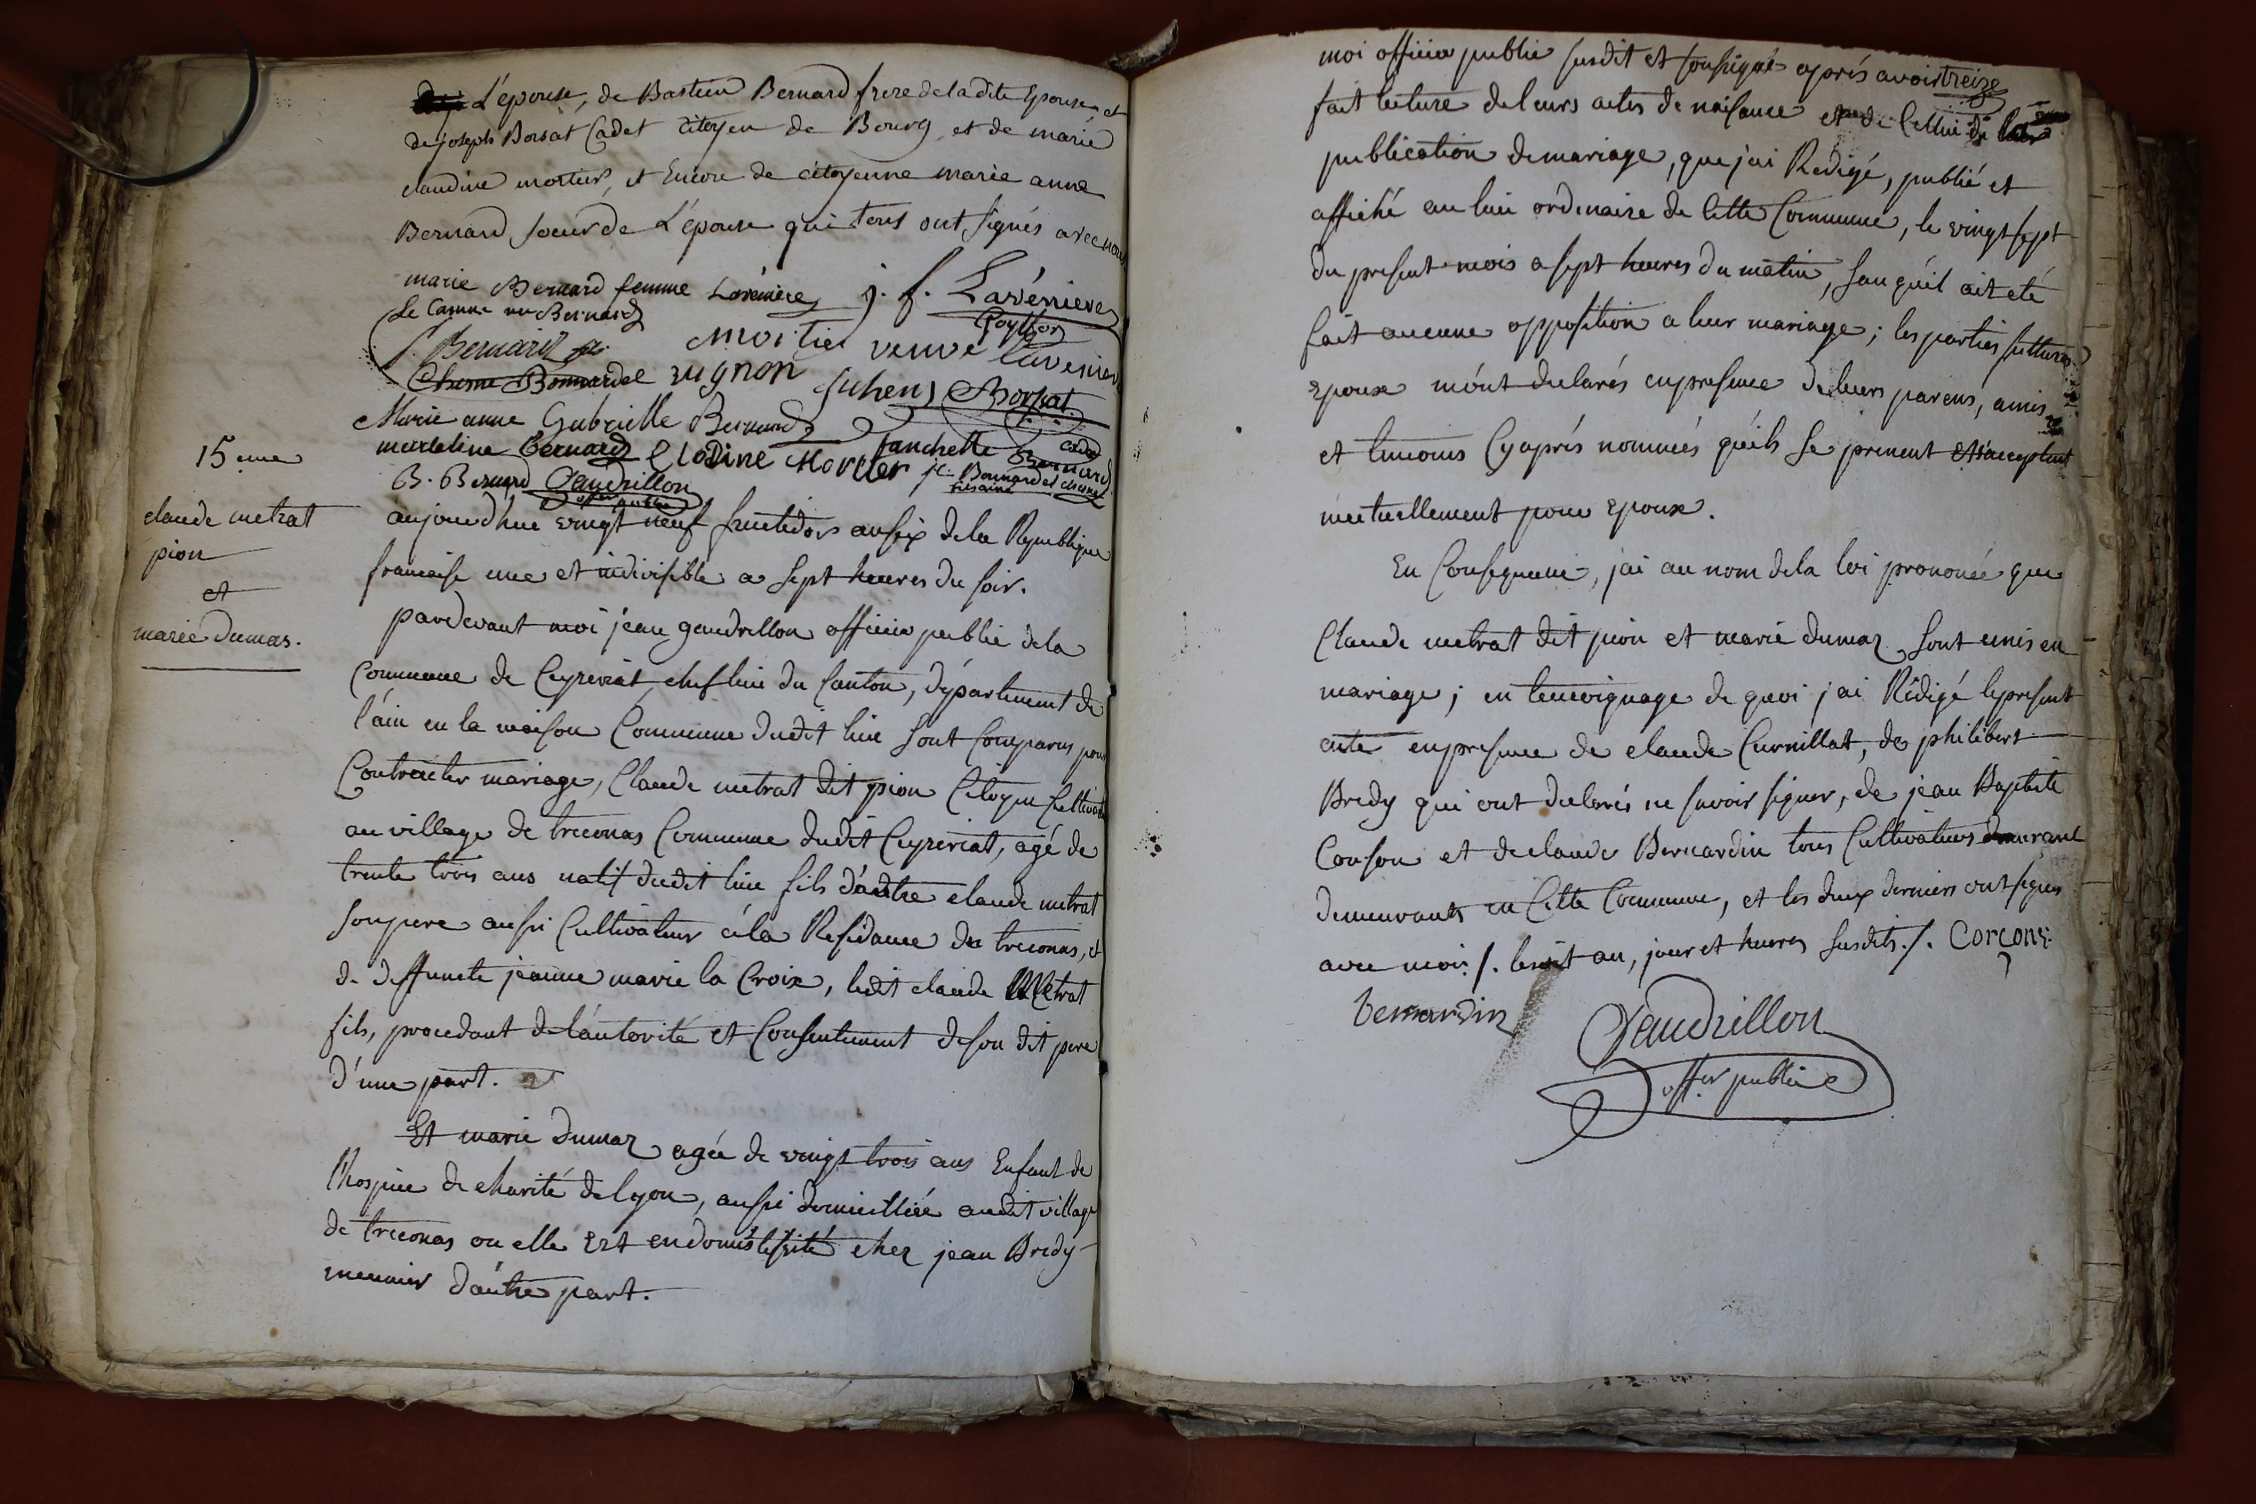 L'épouse, de Bastien Bernard frere de la dite Epouse, et
de joseph Borsat Cadet citoyen de Bourg et de marie
claudine mortier, et Encore de citoyenne marie anne
Bernard soeur de L'épouse qui tous ont signés avec nous
marie Bernard femme Lavénière j. f. Lavéniere
Le Camus née Bernard
Bernard moitier veuve Laveniere
rugnon juhens Borsat
Marie anne Gabrielle Bernard
madeleine Bernard Clodine Morcier fanchette Bernard cadet
B. Bernard Gaudrillon offer public
15eme
claude metrat
pion
et
marie dumas.
aujourd'hui vingt neuf fructidor an six de la Republique
francaise une et indivisible a sept heures du soir.
pardevant moi jean gaudrillon officier public de la
Commune de Ceyzeriat chef lieu du Canton, département de
l'ain en la maison Commune dudit lieu sont Comparus pour
Contracter mariage, Claude metrat dit pion Citoyen Cultivateur
au village de treconas Commune dudit Ceyzeriat, agé de
trente trois ans natif dudit lieu fils d'autre claude metrat
son pere aussi Cultivateur à la Residance de treconas, et
de deffuncte jeanne marie la Croix, ledit claude Metrat
fils, procedant de l'autorité et Consentement de son dit pere
d'une part.
Et marie dumaz agée de vingt trois ans Enfant de
l'hospice de charité de lyon, aussi domicilliée audit village
de treconas ou elle Est en domesticité chez jean Bredy
meunier d'autre part.
treize
moi officier public susdit et soussigné après avoir
fait lecture de leurs actes de naisance et de Cellui de
publication de mariage, que j'ai Redigé, publié et
affiché au lieu ordinaire de Cette Commune, le vingt sept
du present mois a sept heures du matin, san qu'il ait eté
fait aucune opposition a leur mariage; les parties futtures
Epoux m'ont declarés en presence de leurs parens, amis
et temoins Cy après nommés qu'ils se prenent et s'acceptent
mutuellement pour Epoux.
En Consequence, j'ai au nom de la loi prononcé que
Claude metrat dit pion et marie dumaz sont unis en
mariage; en temoignage de quoi j'ai Rédigé le present
acte en presence de claude Curnillat, de philibert
Bredy qui ont declarés ne savoir signer, de jean Baptiste
Conson et de claude Bernardin tous Cultivateurs
demeurants en Cette Commune, et les deux derniers ont signés
avec moi /. lesdit an, jour et heures susdits /. Corçons
bernardin
Gaudrillon
offer public